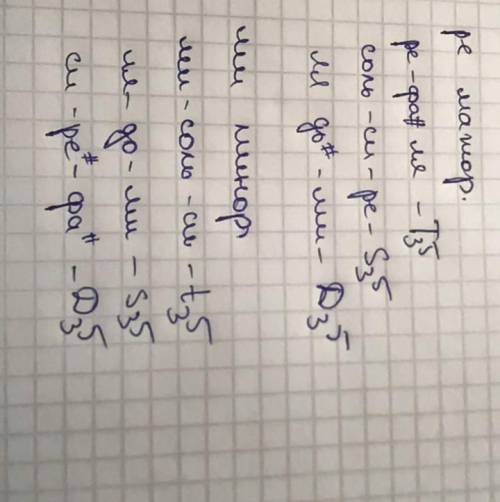 ре мажор.
ре - фа# ля - Т 5 3
соль - си - ре - S 5 3
ля до# - ми - D 5 3
ми минор
ми - соль - си - t 5 3
ля - до - ми - S 5 3
си - ре# - фа# - D 5 3